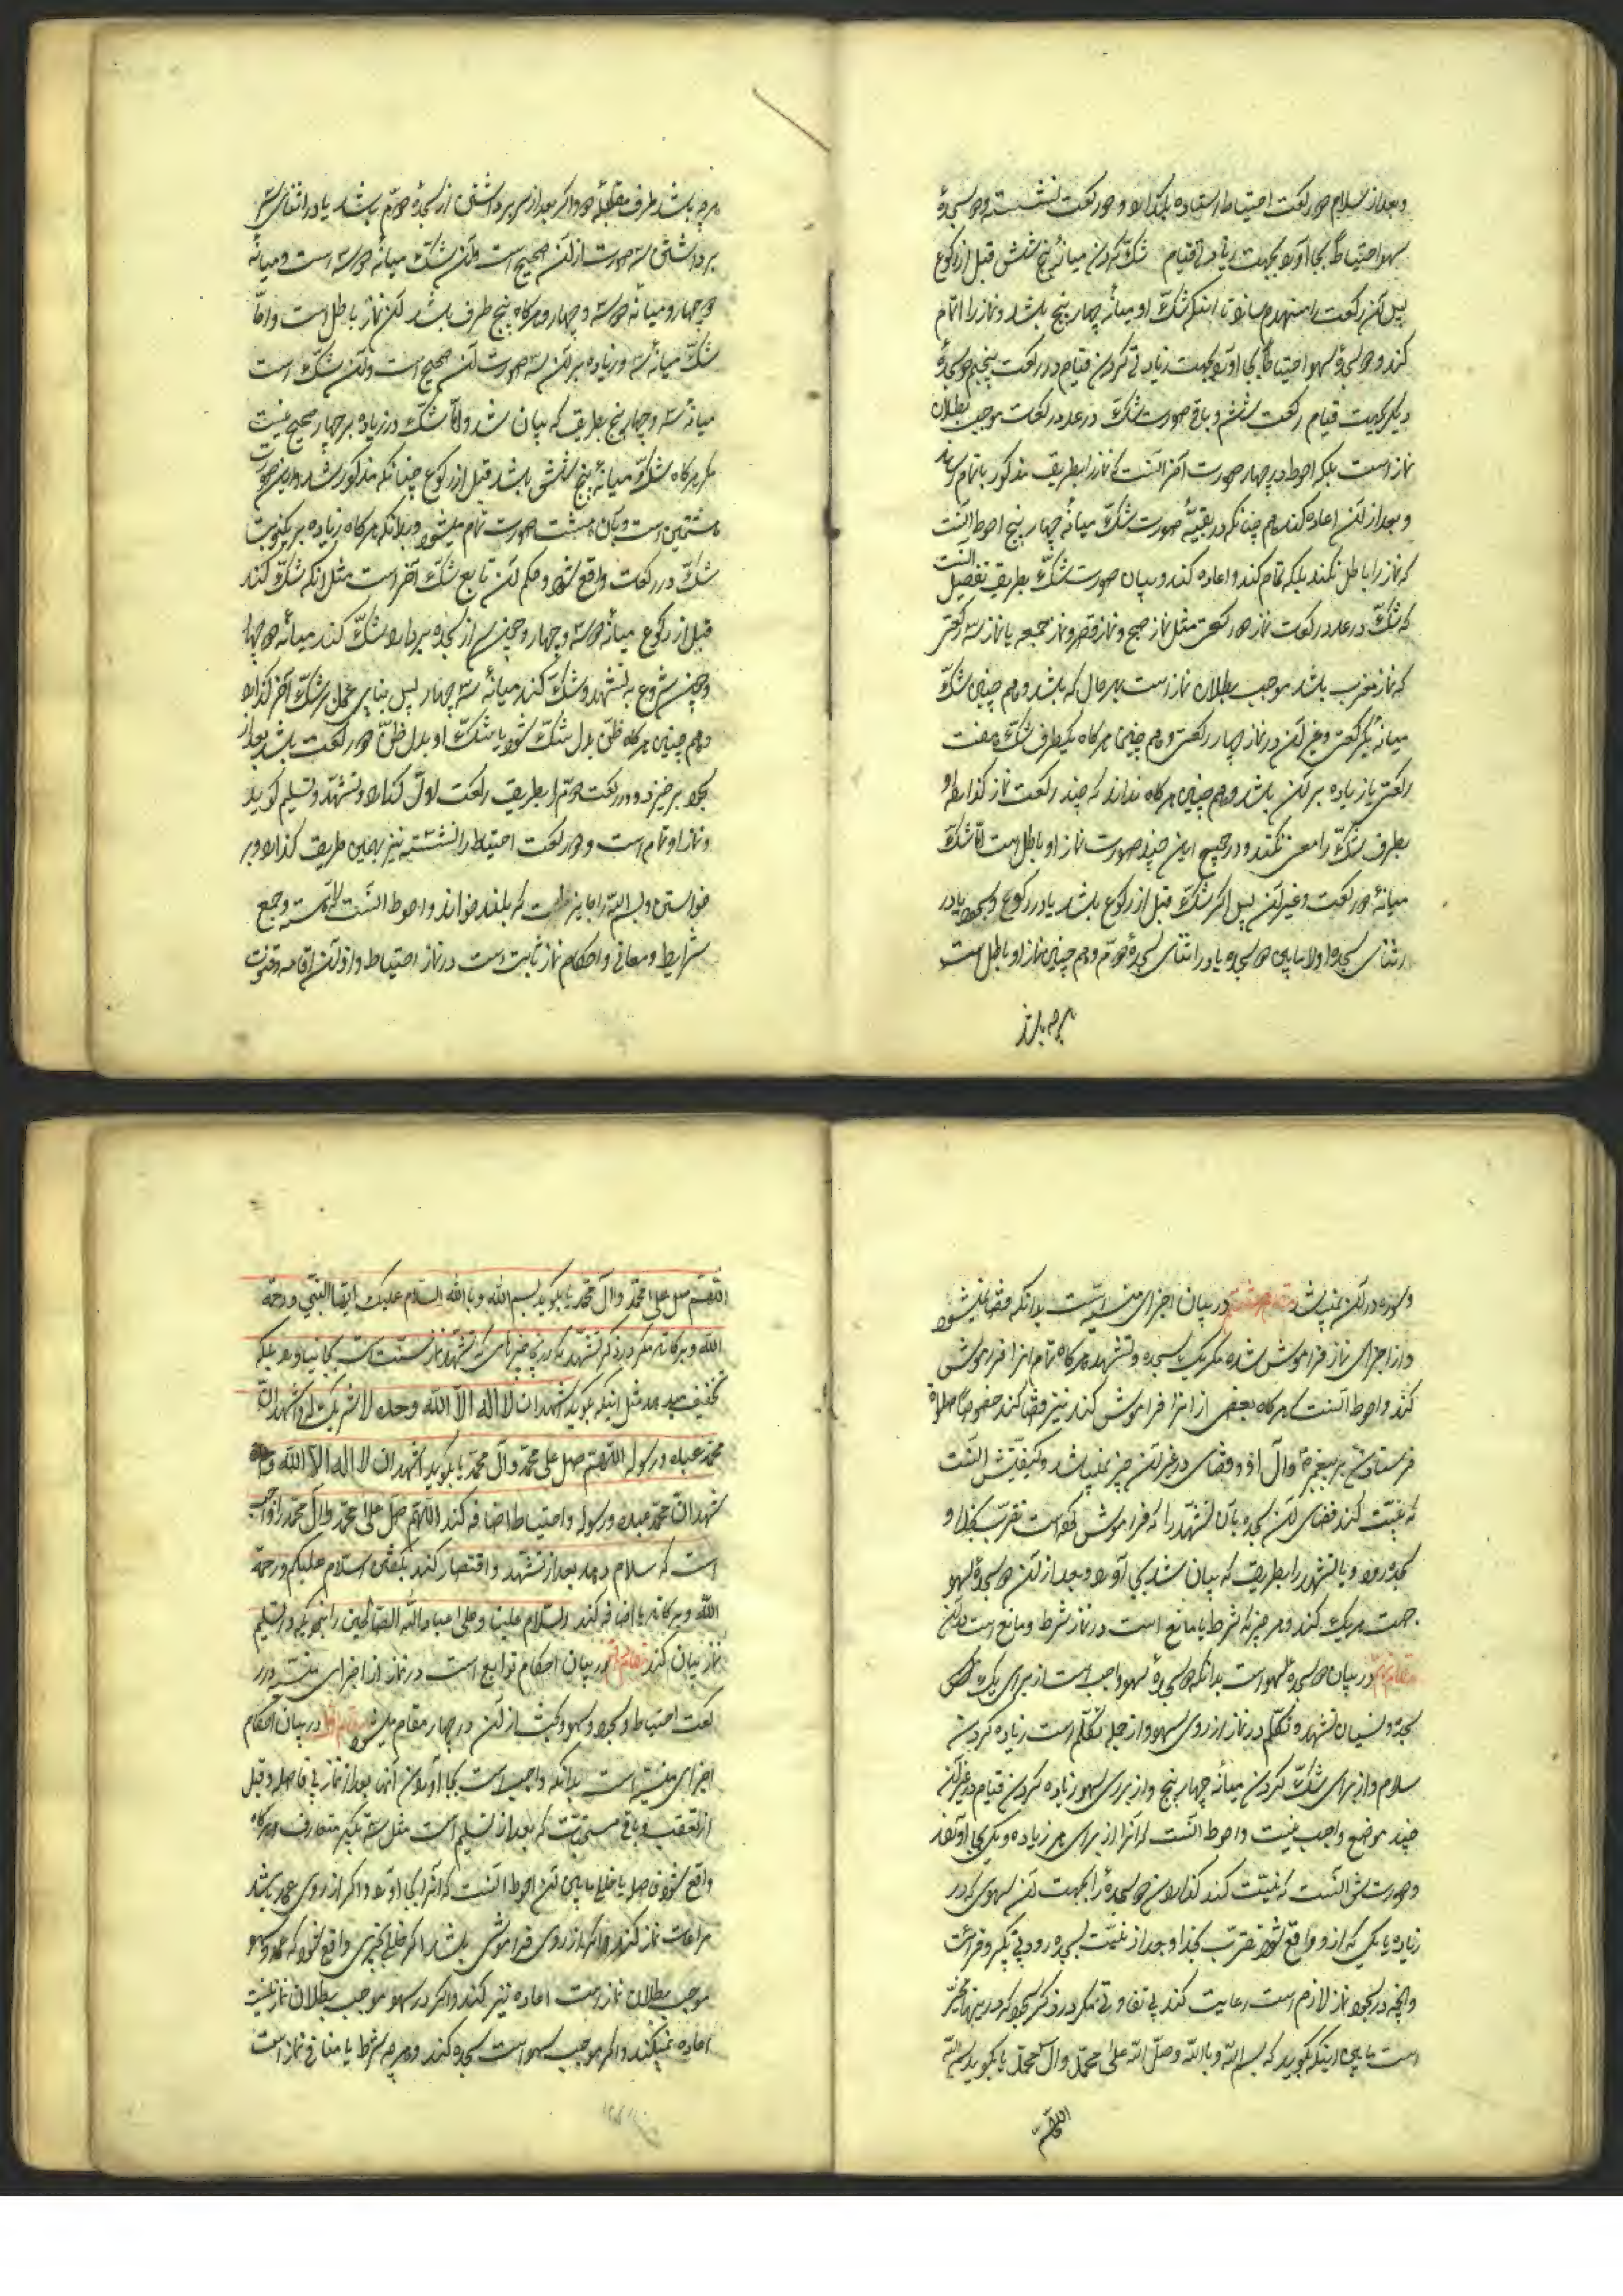 و بعد از سلام دو رکعت احتیاط استاده بگذارد و دو رکعت نشسته و دو سجدهٔ
سهو احتیاطاً بجا آورد بجهت زیادتی قیام شک کردن میانهٔ پنج شش قبل از رکوع
پس آن رکعت را منهدم سازد تا اینکه شک او میانهٔ چهار پنج باشد و نماز را اتمام
کند و دو سجدهٔ سهو احتیاطاً بجا آورد بجهت زیادتی کردن قیام در رکعت پنجم دو سجدهٔ
دیگر بجهت قیام رکعت ششم و باقی صورت شک در عدد رکعت موجب بطلان
نماز است بلکه احوط در چهار صورت آخر آنست که نماز را بطریق مذکور باتمام رساند
و بعد از آن اعاده کند هم چنانکه در بقیهٔ صورت شک میانهٔ چهار پنج احوط آنست
که نماز را باطل نکند بلکه تمام کند و اعاده کند و بیان صورت شک بطریق تفصیل آنست
که شک در عدد رکعت نماز دو رکعتی مثل نماز صبح و نماز قصر و نماز جمعه یا نماز سه رکعتی
که نماز مغرب باشد موجب بطلان نماز است بهر حال که باشد و هم چنین شک
میانهٔ یک رکعتی و غیر آن در نماز چهار رکعتی و هم چنین هر گاه یکطرف شک هفت
رکعتی یا زیاده بر آن باشد و هم چنین هر گاه نداند که چند رکعت نماز گذارده و
بطرف شک را معین نکند و در جمیع این چند صورت نماز او باطل است امّا شک
میانهٔ دو رکعت و غیر آن پس اگر شک قبل از رکوع باشد یا در رکوع و سجود یا در
اثنای سجدهٔ اولا یا پیش دو سجده یا در اثنای سجدهٔ دوّم و هم چنین نماز او باطل است
هر چه باشد
هر چه باشد طرف مقطعهٔ دو و اگر بعد از سر برداشتن از سجدهٔ دوّم باشد یا در اثنای سر
برداشتن سه صورت از آن صحیح است و آن شک میانهٔ دو سه است و میانهٔ
دو چهار و میانهٔ دو سه و چهار و هر گاه پنج طرف باشد آن نماز باطل است و امّا
شک میانهٔ سه و زیاده بر آن سه صورت آن صحیح است و آن شک است
میانهٔ سه و چهار پنج بطریق که بیان شد و امّا شک در زیاده بر چهار صحیح نیست
مگر هر گاه شک میانهٔ پنج شش باشد قبل از رکوع چنانکه مذکور شد و این صورت
هشتمین است و بآن هشت صورت تمام میشود و بدانکه هر گاه زیاده بر یکنوبت
شک در رکعت واقع شود و حکم آن تابع شک آخر است مثل آنکه شک کند
قبل از رکوع میانهٔ دو سه و چهار و چون سر از سجده بردارد شک کند میانهٔ دو چهار
و چون شروع به تشهد و شک کند میانهٔ سه چهار پس بنای عمل بر شک آخر گذارد
و هم چنین هر گاه ظن بدل شک شود یا شک او بدل ظن دو رکعت باشد بعد از
سجود برخیزد و دو رکعت دوّم را بطریق رکعت اوّل گذارد و تشهد و تسلیم گوید
و نماز او تمام است و دو رکعت احتیاط را نشسته نیز بهمین طریق گذارد و بر
خواستن و بسم الله را جایز است که بلند خواند و احوط آنست که آهسته و جمع
شرایط و معانی و احکام نماز ثابت است در نماز احتیاط و اذان و اقامه و قنوت
و سوره در آن نمیباشد مقام هشتم در بیان اجزای منسیّه است بدانکه قضا نمیشود
و از اجزای نماز فراموش شده مگر یک سجده و تشهد هر گاه تمام او را فراموش
کند و احوط آنست که هر گاه بعضی از او را فراموش کند نیز قضا کند خصوصاً صلوة
فرستادن بر پیغمبر و آل او و قضای در غیر آن چیز نمیباشد و کیفیتش آنست
که نیّت کند قضای آن سجده یا آن تشهد را که فراموش کرده است تقرّب بخدا و
سجده رود و یا تشهد را بطریق که بیان شد بجا آورد و بعد از آن دو سجدهٔ سهو
جهت هر یک کند و هر چیز که شرط یا مانع است در نماز شرط و مانع است در آن
مقام نهم در بیان دو سجدهٔ سهو است بدانکه دو سجدهٔ سهو واجب است از برای یک
سجده و نسیان تشهد و تکلّم در نماز از روی سهو و از جمله تکلّم است زیاده کردن
سلام و از برای شک کردن میانهٔ چهار پنج و از برای سهو زیاده کردن قیام در غیر آن
چند موضع واجب نیست و احوط آنست که آنرا از برای هر زیاده و کمی بجا آورند
و صورتش آنست که نیّت کند گذاردن دو سجده را بجهت آن سهوی که در
زیاده یا یکی که از او واقع شود تقرّب بخدا و بعد از نیّت بسجده رود بی تکبیر و قرائت
و آنچه در سجود نماز لازم است رعایت کند بی تفاوتی مگر در ذکر سجود که در اینها مخیّر
است یا پی اینکه بگوید که بسم الله و بالله و صلّی الله علی محمّد و آل محمّد یا بگوید بسم الله
اللّهمّ
اللّهمّ صل علی محمّد و آل محمّد یا بگوید بسم الله و بالله السلام علیک ایّها النبیّ و رحمة
الله و برکاته مگر در ذکر تشهد که در چیزهای که تشهد نماز سنّت است بجا نیاورد بلکه
تخفیف دهد مثل اینکه بگوید اشهد ان لا اله الّا الله وحده لا شریک له و اشهد انّ
محمّد عبده و رسوله اللّهمّ صل علی محمّد و آل محمّد یا بگوید اشهد ان لا اله الّا الله و
اشهد انّ محمّد عبده و رسوله و احتیاطا اضافه کند اللّهمّ صل علی محمّد و آل محمّد را و واجب
است که سلام دهد بعد از تشهد و اقتصار کند بگفتن السلام علیکم و رحمة
الله و برکاته یا اضافه کند و السلام علینا و علی عباد الله الصالحین را بنحوی که در تسلیم
نماز بیان کند مقام در بیان احکام توابع است در نماز از اجزای منسیّه و در
رکعت احتیاط و سجود سهو و بحث از آن در چهار مقام میشود مقام اوّل در بیان احکام
اجزای منسیّه است بدانکه واجب است بجا آوردن آنها بعد از نماز بی فاصله و قبل
از تعقیب و باقی مستحبّات که بعد از تسلیم است مثل سه تکبیر متعارف و هر گاه
واقع شود فاصله یا خللی ما بین آن احوط آنست که آنرا بجا آورد و اگر از روی عمد باشد
مراعات نماز کند و اگر از روی فراموشی باشد اگر خللی چیزی واقع شود که عمد و سهو
موجب بطلان نماز است اعاده نیز کند و اگر در سهو موجب بطلان نماز نیست
اعاده نمیکند و اگر موجب سهو است سجده کند و هر چه شرط یا منافی نماز است